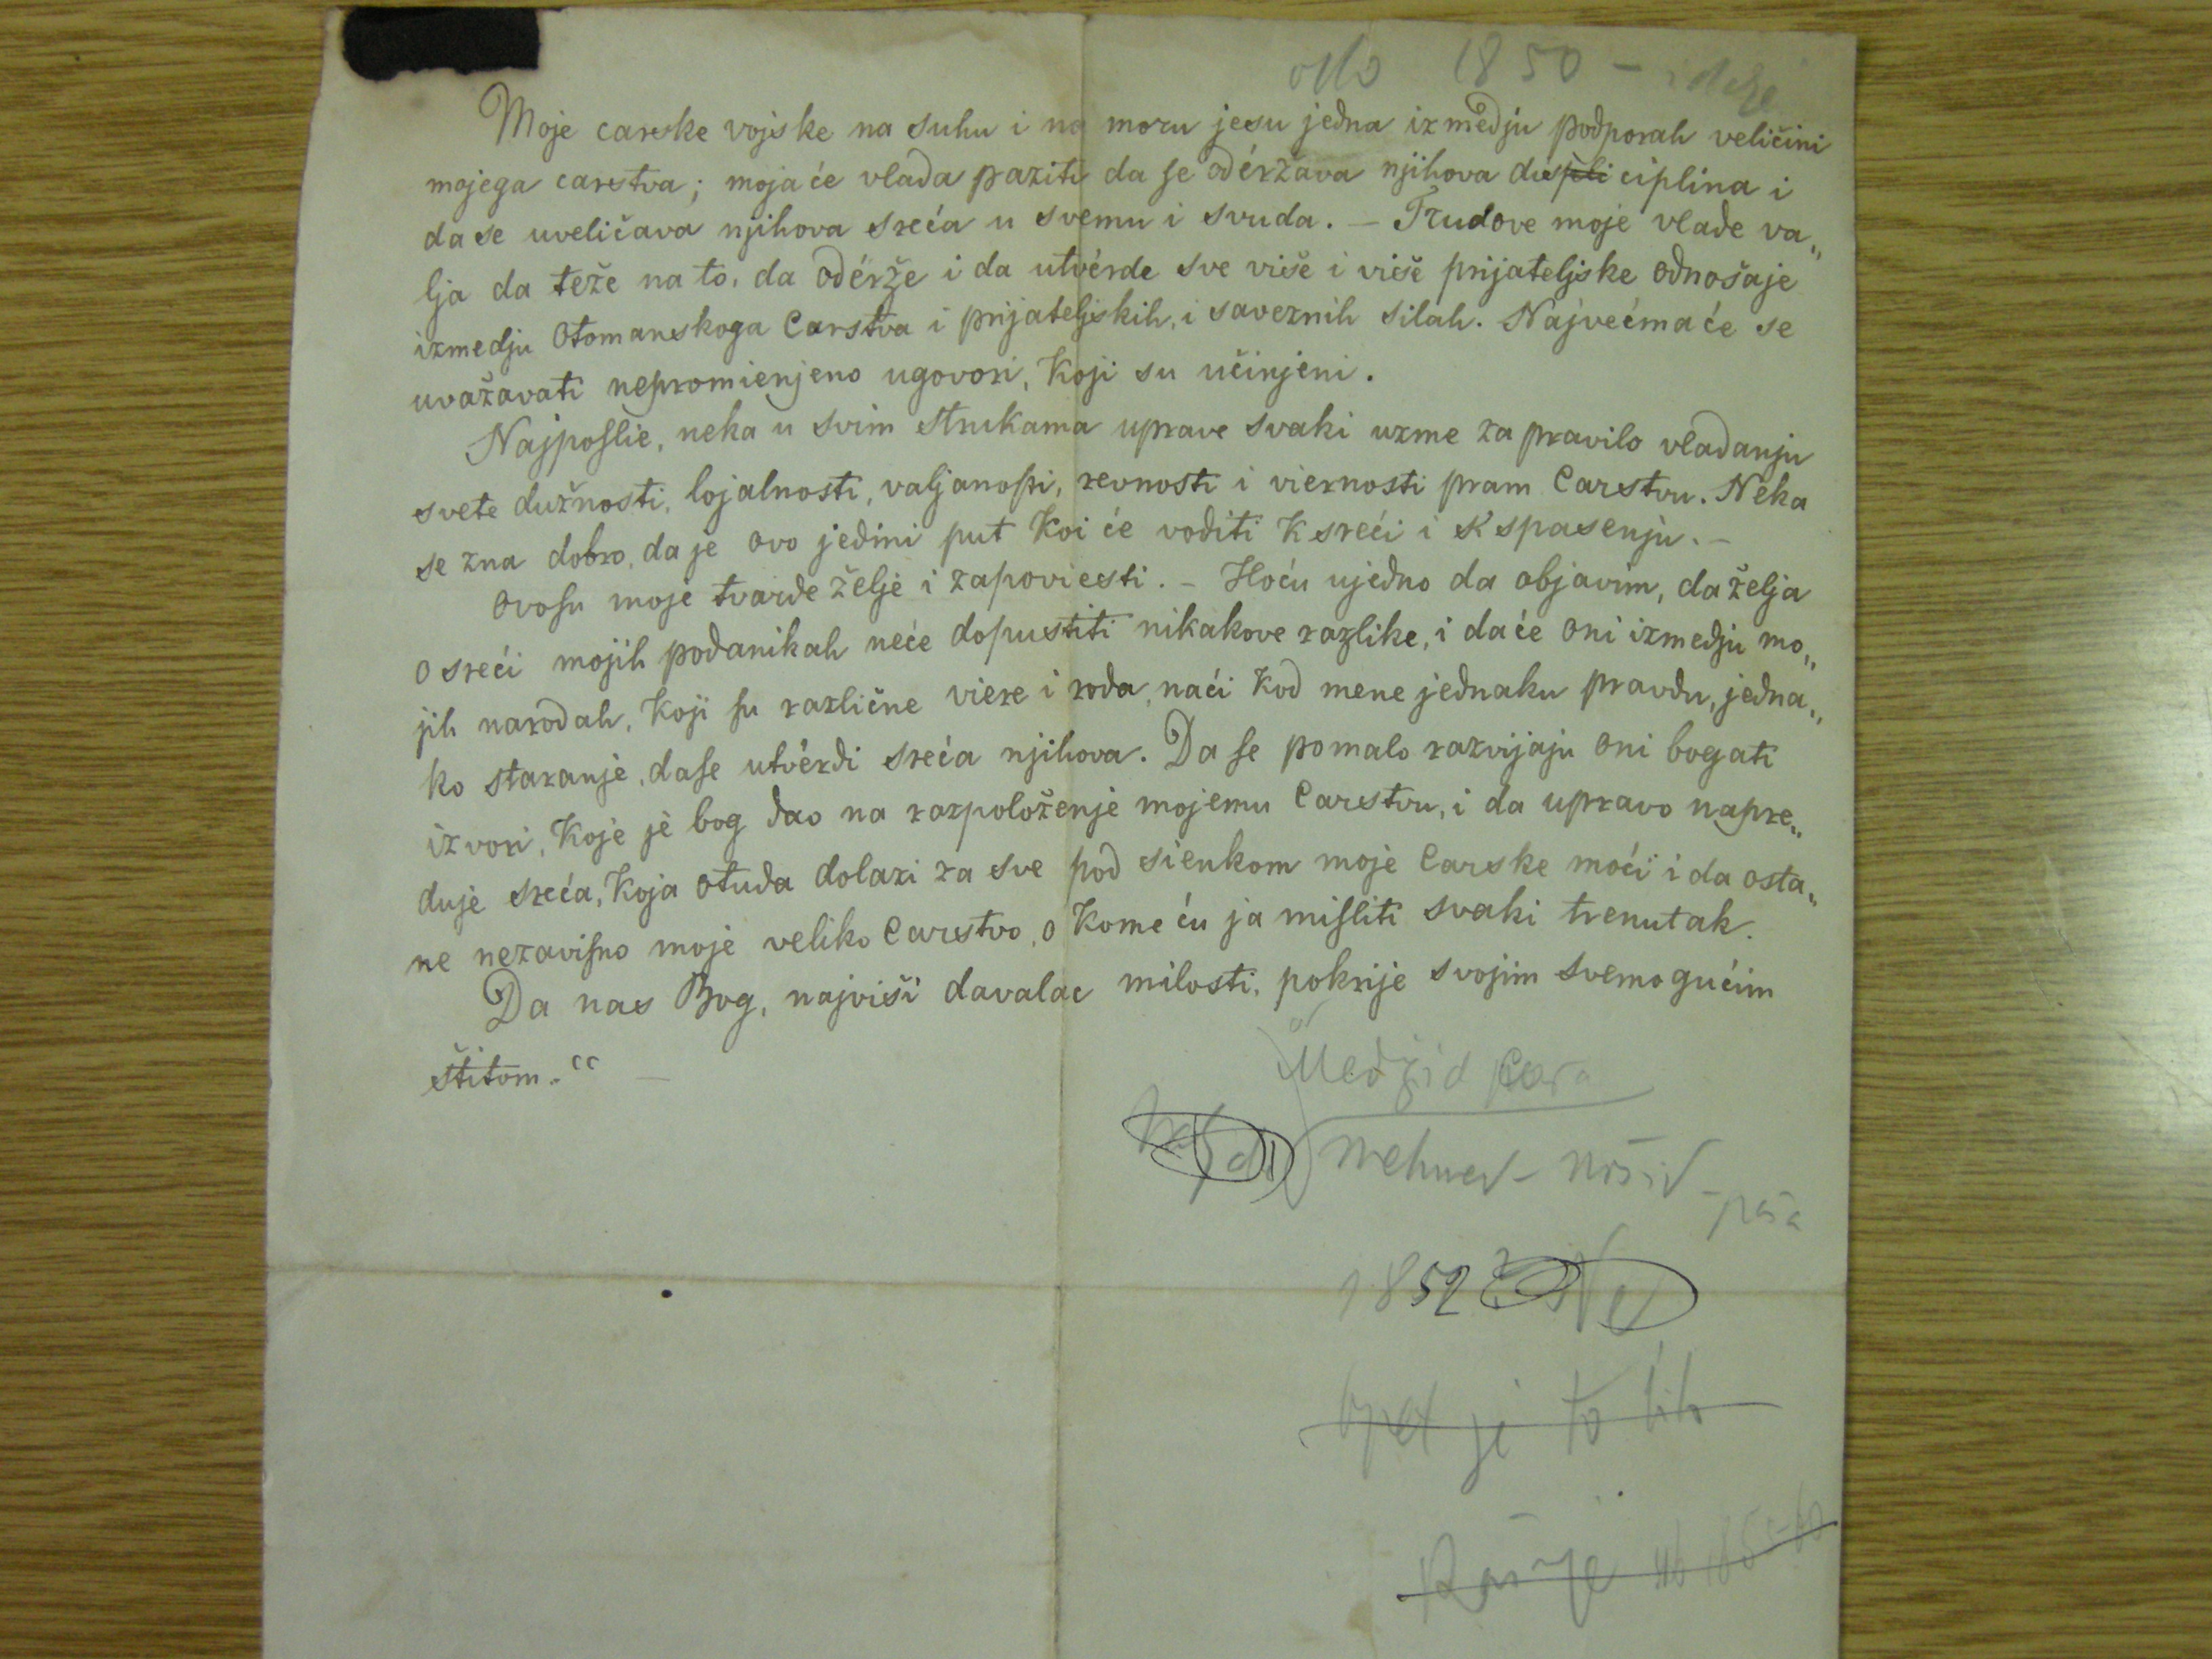 oko 1850 –
Moje carske vojske na suhu i na moru jesu jedna izmedju podporah veličini
mojega carstva; moja će vlada paziti da se odèržava njihova displi ciplina i
da se uveličava njihova sreća u svemu i svuda. – Trudove moje vlade va„
lja da teže na to, da odèrže i da utvèrde sve više i više prijateljske odnošaje
izmedju Otomanskoga Carstva i prijateljskih, i saveznih silah. Najvećma će se
uvažavati nepromienjeno ugovori, Koji su učinjeni.
Najposlie, neka u svim strukama uprave svaki uzme za pravilo vladanju
svete dužnosti, lojalnosti, valjanosti, revnosti i viernosti pram Carstvu. Neka
se zna dobro, da je ovo jedini put Koi će voditi K sreći i K spasenju. –
Ovosu moje tvarde želje i zapoviesti. – Hoću ujedno da objavim, da želja
o sreći mojih podanikah neće dopustiti nikakove razlike, i da će oni izmedju mo„
jih narodah, Koji su različne viere i roda, naći Kod mene jednaku pravdu, jedna„
ko staranje, dase utvèrdi sreća njihova. Da se pomalo razvijaju oni bogati
izvori, Koje je bog dao na razpoloženje mojemu Carstvu, i da upravo napre„
duje sreća, Koja otuda dolazi za sve pod sienkom moje Carske moći i da osta„
ne nezavisno moje veliko Carstvo, o Kome ću ja misliti svaki trenutak.
Da nas Bog, najviši davalac milosti, pokrije svojim svemogućim
štitom.“ –
Medžid
Mehmed-
paša
1852
opet je to bilo